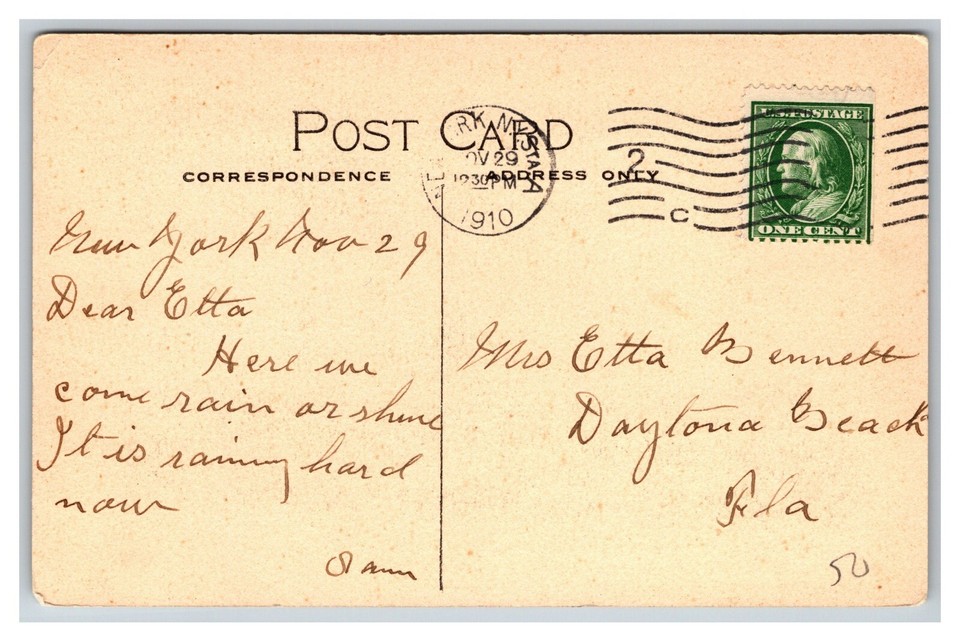 POST CARD
CORRESPONDENCE
ADDRESS ONLY
RK, N.Y. STA. A
OV 29
12 30 PM
1910
2
C
U.S. POSTAGE
ONE CENT
New York Nov 29
Dear Etta
Here we
come rain or shine
It is raining hard
now
Mrs Etta Bennett
Daytona Beach
Fla
50